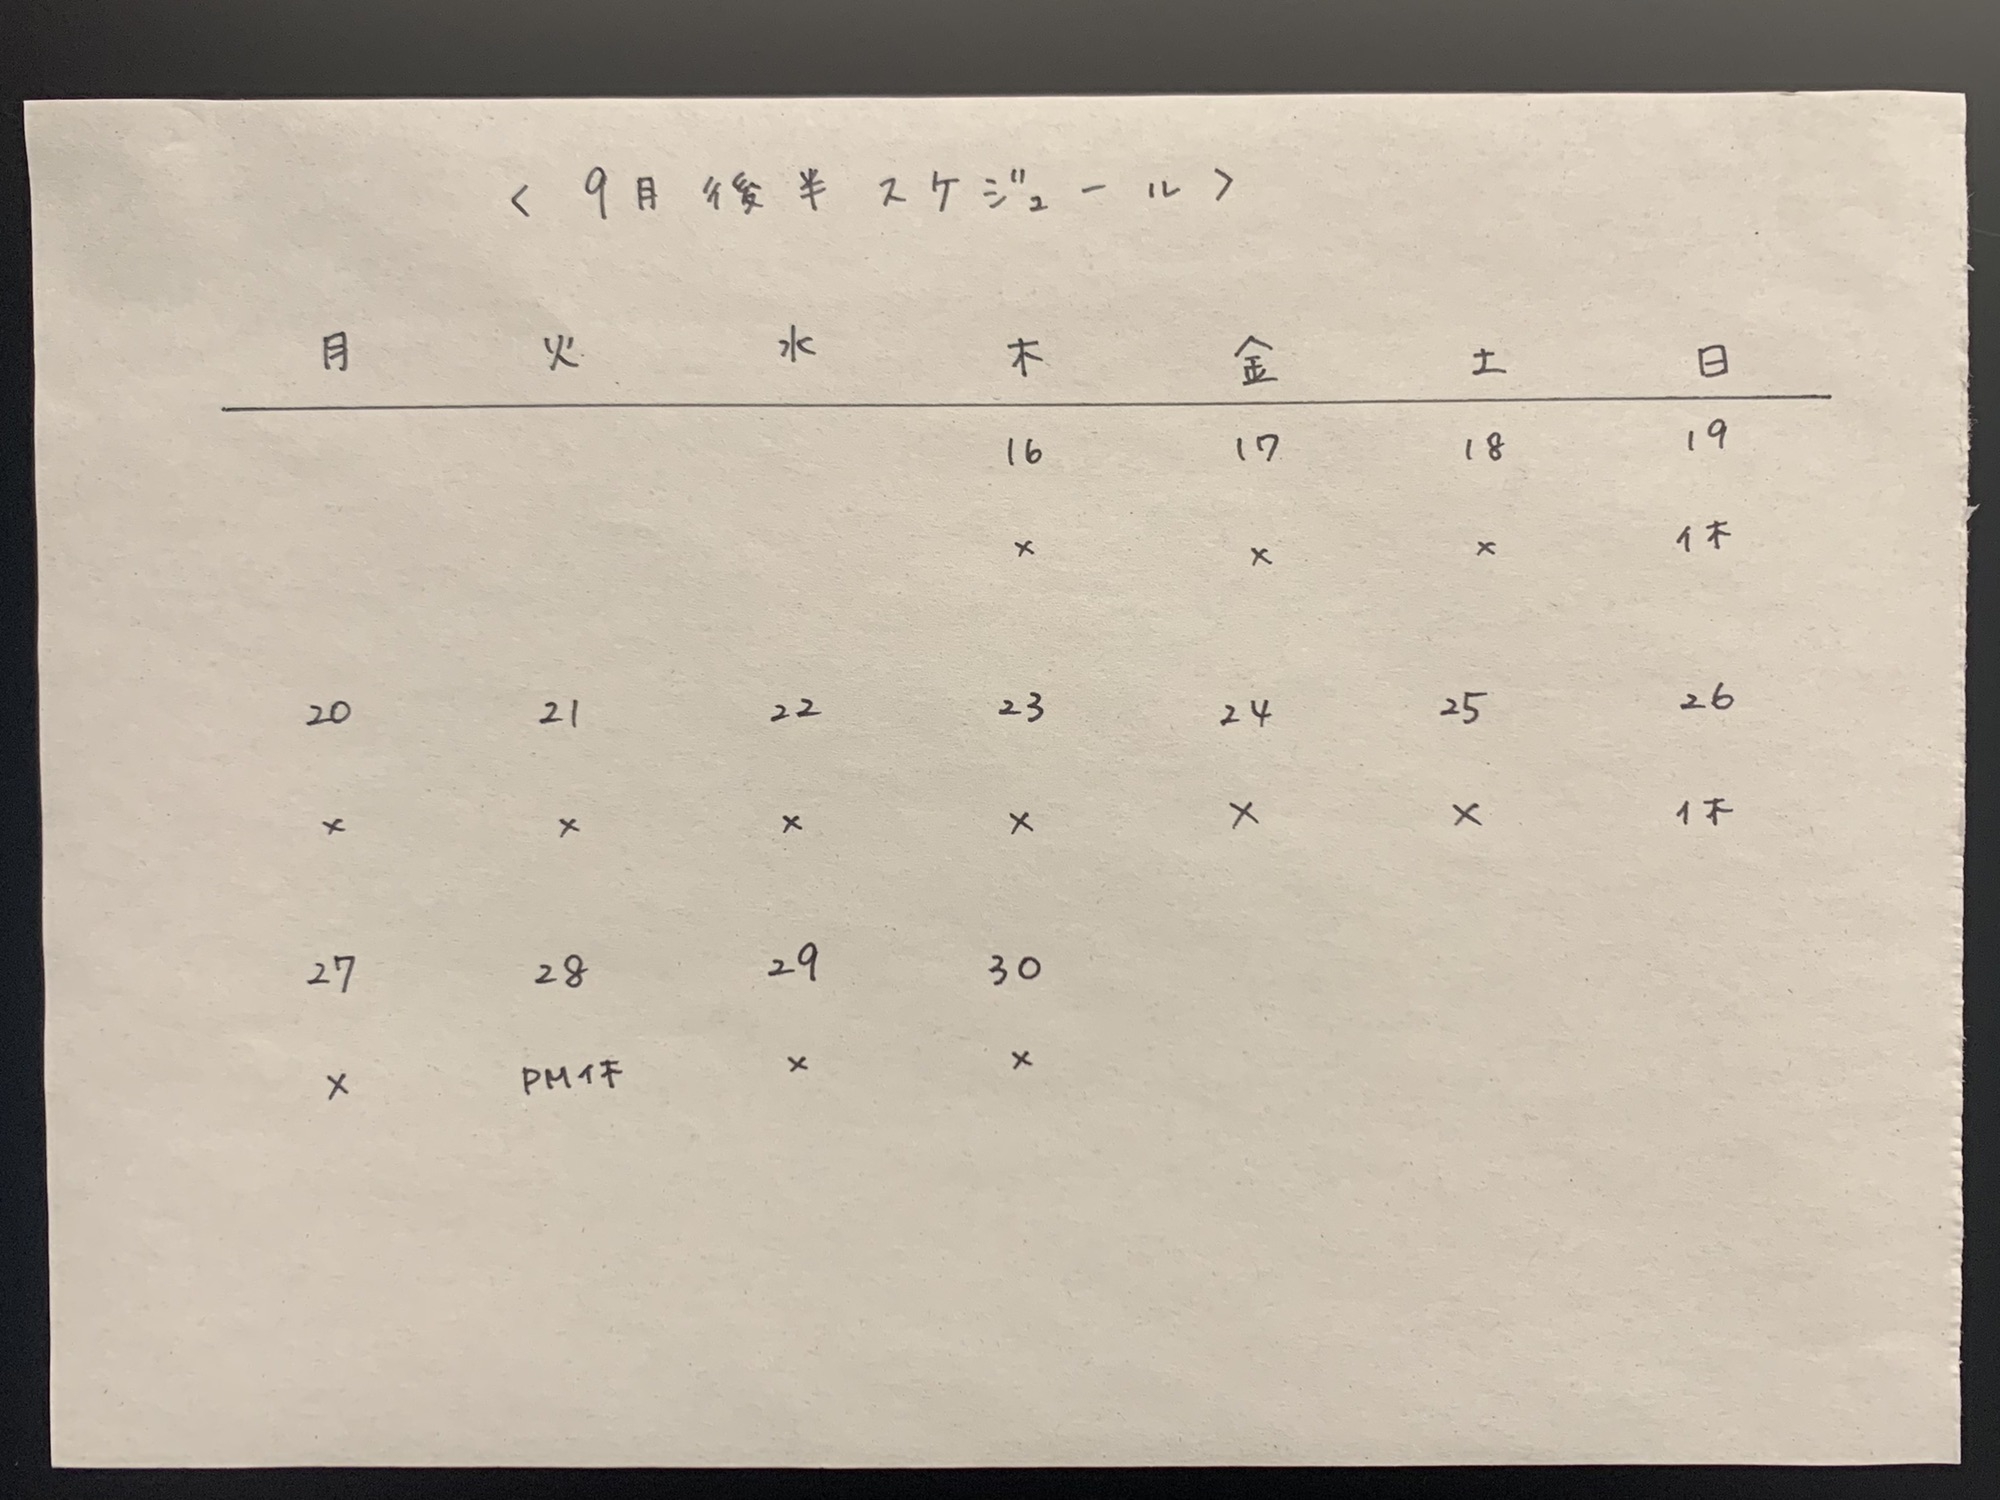 <9月後半スケジュール>
月 火 水 木 金 土 日
16 17 18 19
× × × 休
20 21 22 23 24 25 26
× × × × × × 休
27 28 29 30
× PM休 × ×